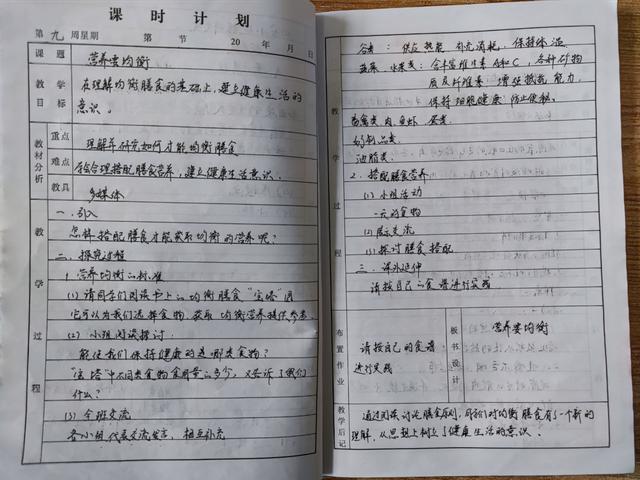 课时计划
第九周星期 第 节 20 年 月 日
课题 营养要均衡
教学目标 在理解均衡膳食的基础上,建立健康生活的
意识。
教材分析
重点 理解并研究如何才能均衡膳食
难点 学会合理搭配膳食营养,建立健康生活意识。
教具 多媒体
教学过程
一.引入
怎样搭配膳食才能获取均衡的营养呢?
二.探究过程
1.营养均衡的标准
(1)请同学们阅读书中上的均衡膳食"宝塔"图
它可以为我们选择食物.获取均衡营养提供参考.
(2)小组阅读探讨:
能使我们保持健康的是哪类食物?
"宝塔"中不同类食物食用量的多少,又告诉了我们
什么?
(3)全班交流
各小组代表交流发言,相互补充
教学过程
谷类:供应热能 补充消耗,保持体温
蔬菜 水果类:含丰富维生素A和C,各种矿物
质及纤维素 增强抵抗能力,
保持细胞健康 防止便秘。
畜禽类 肉、鱼虾、蛋类.
奶制品类.
油脂类.
2.搭配膳食营养
(1)小组活动
一天的食物
(2)展示交流
(3)探讨膳食搭配
三.课外延伸
请按自己的食谱进行实践
布置作业 请按自己的食谱
进行实践
板书设计 营养要均衡
教学后记 通过阅读讨论膳食原则,同学们对均衡膳食有了一个新的
理解,从思想上树立了健康生活的意识.